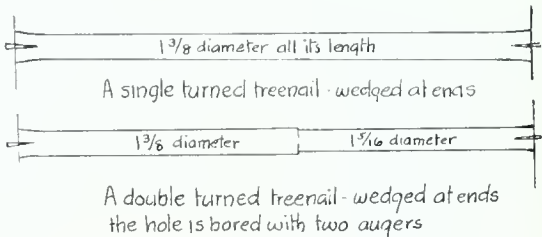 1 3/8 diameter all its length
A single turned treenail - wedged at ends
1 3/8 diameter 1 5/16 diameter
A double turned treenail - wedged at ends
the hole is bored with two augers